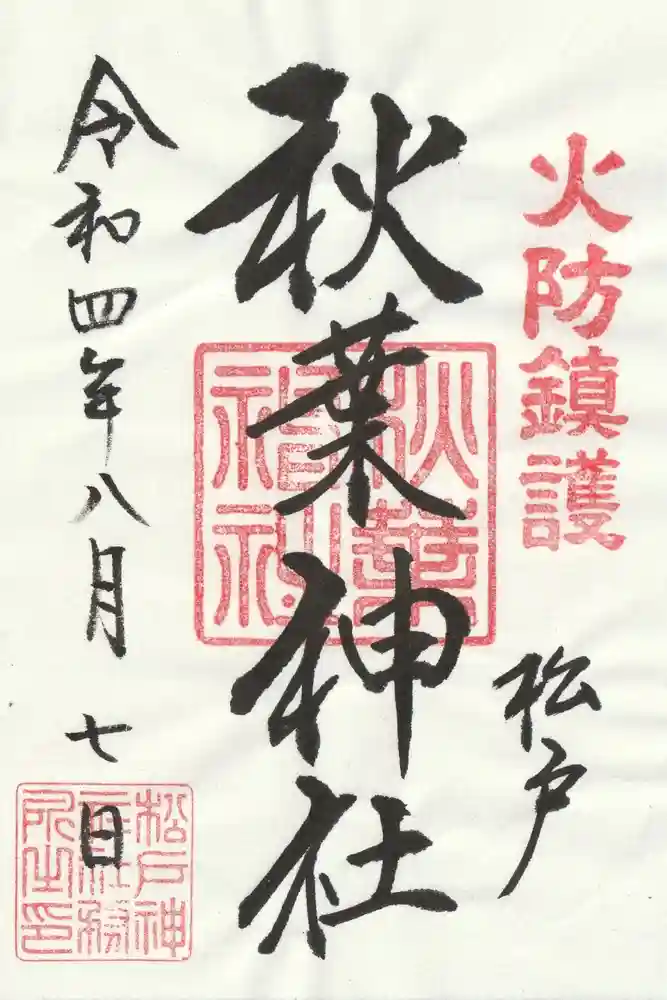 火防鎮護
松戸
秋葉神社
秋葉神社
令和四年八月七日
松戸神
社社務
所之印